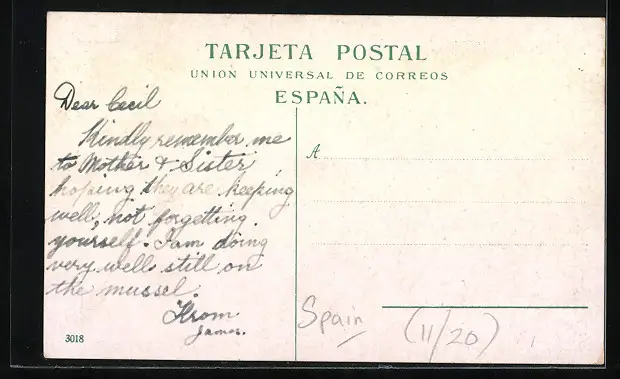 TARJETA POSTAL
UNION UNIVERSAL DE CORREOS
ESPAÑA.
Dear Cecil
Kindly remember me
to Mother & Sister
hoping they are keeping
well, not forgetting
yourself. I am doing
very well still on
the mussel.
From
James.
A
3018
Spain
(11/20)